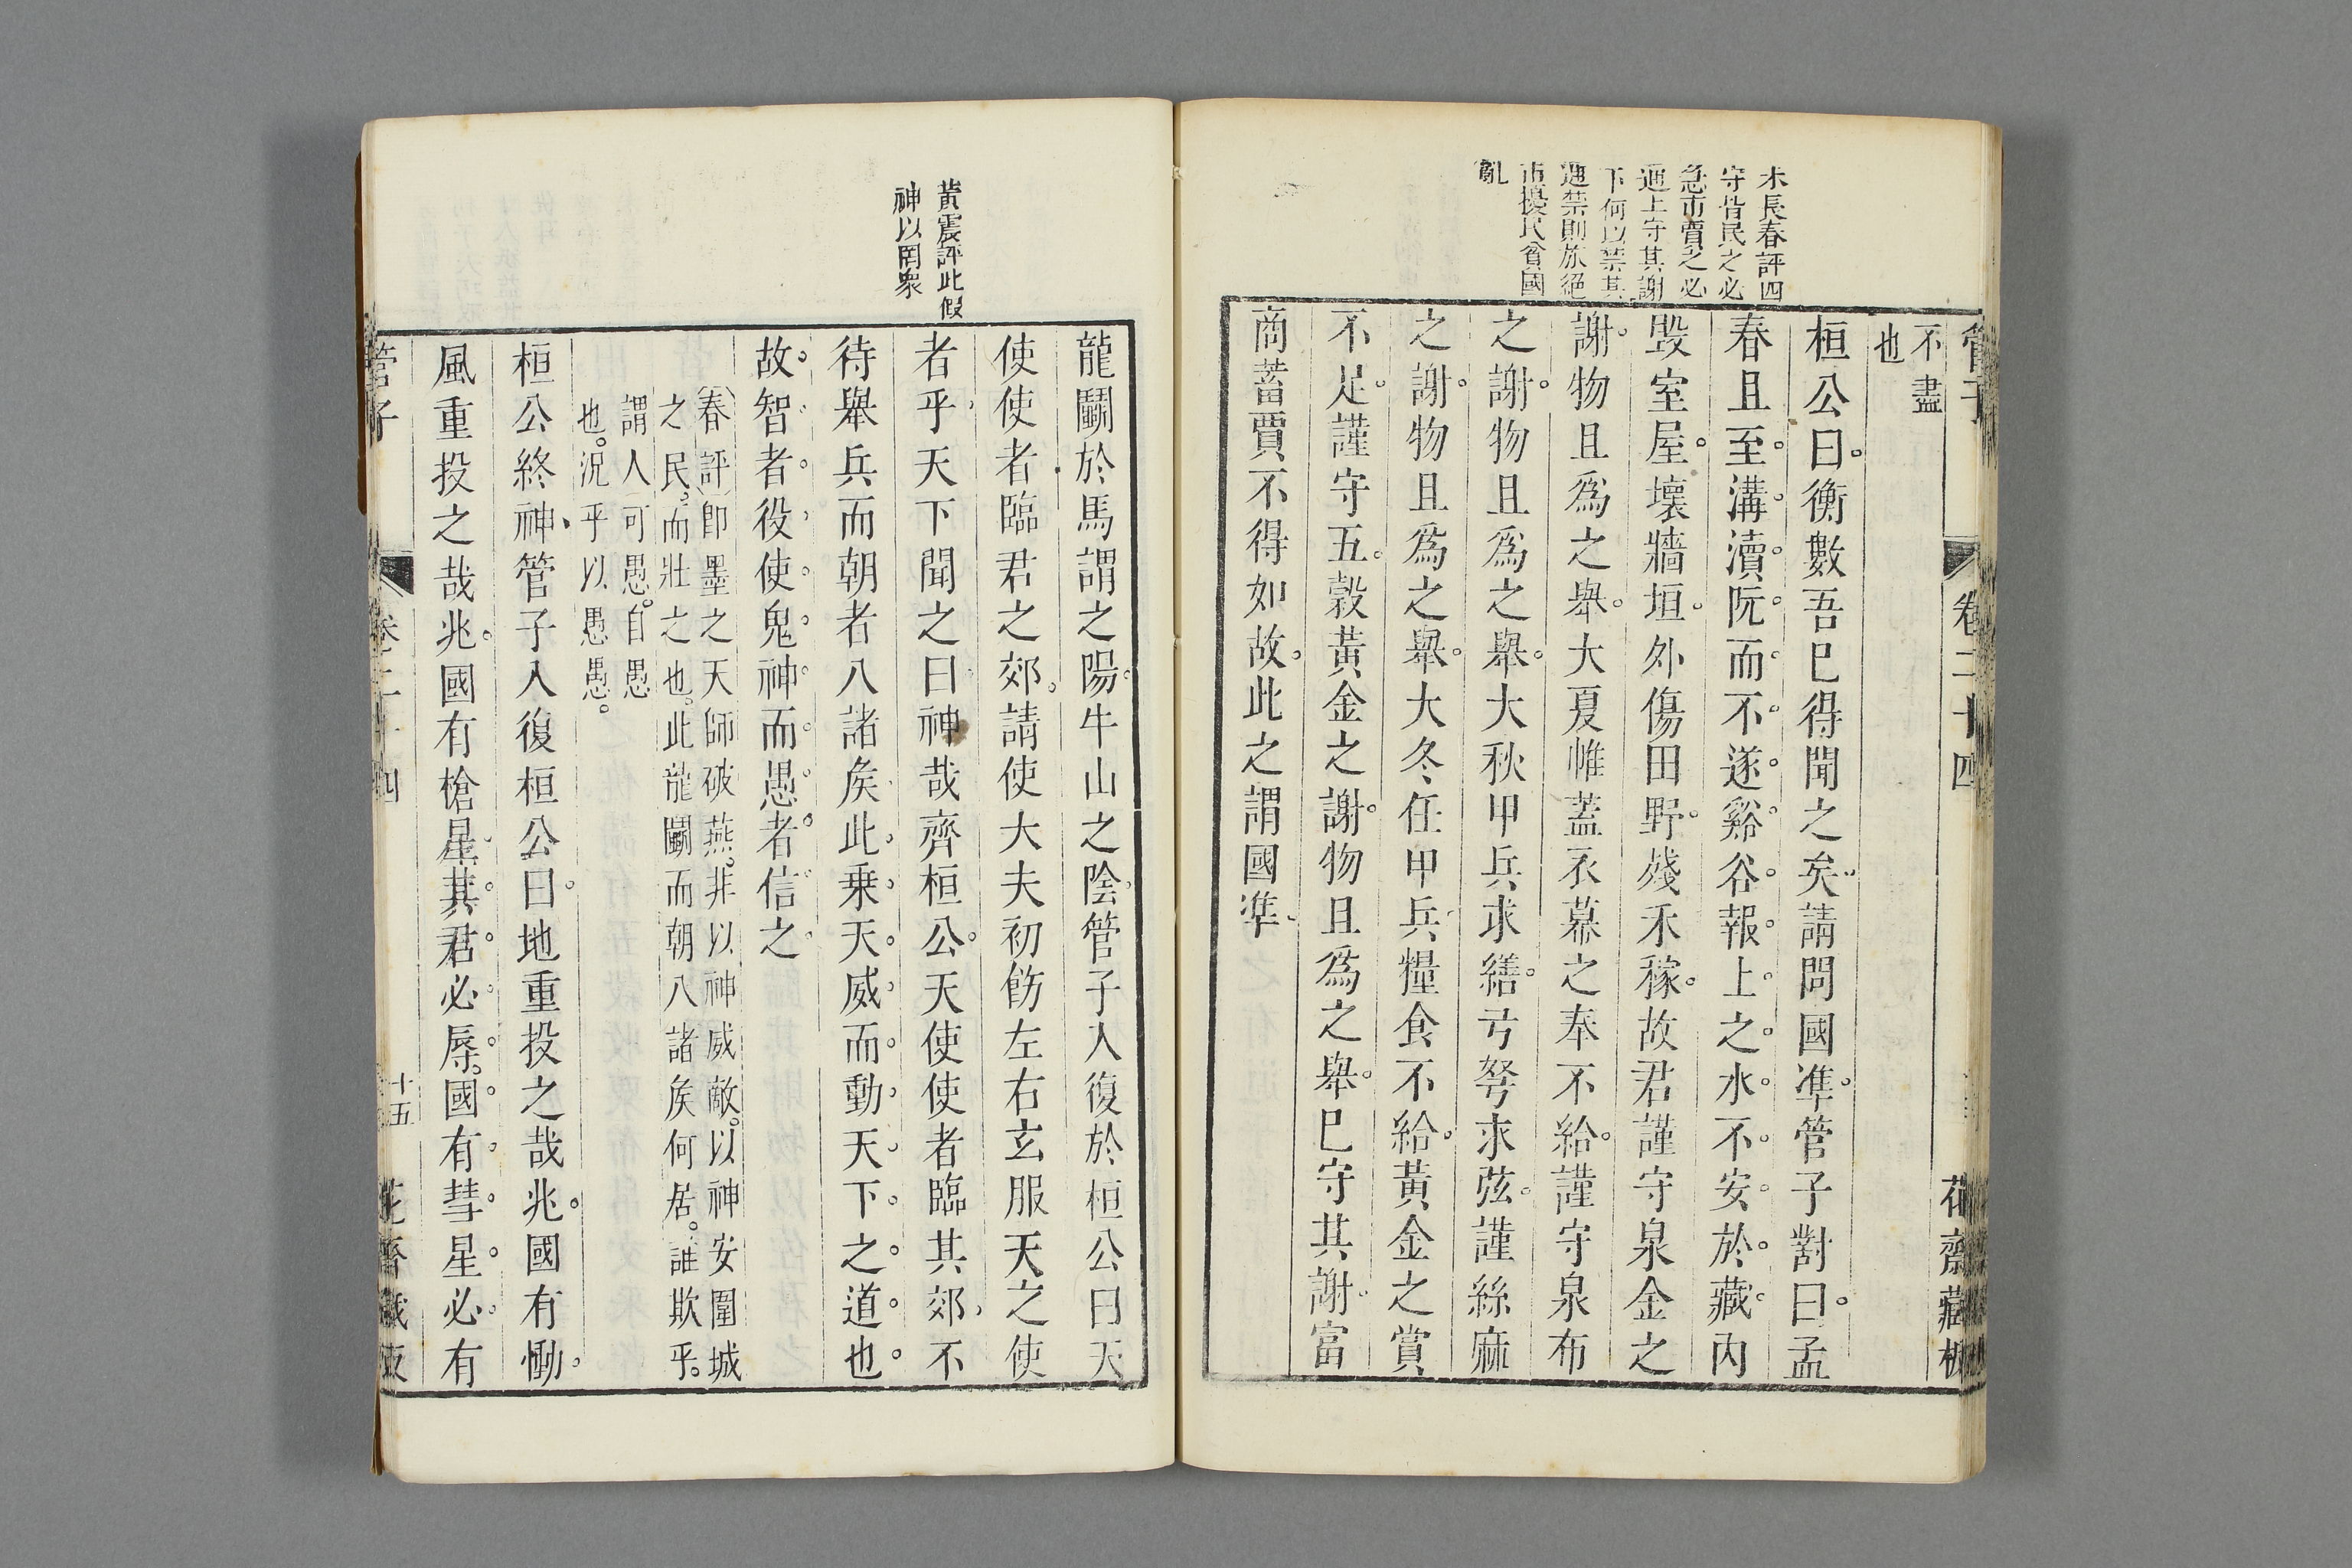 管子
卷二十四
花齋藏板
朱長春評四
守皆民之必
急市賣之必
通上守其謝
下何以禁其
通禁則旅絕
市擾民貧國
亂
不盡
也
桓公曰衡數吾已得聞之矣請問國準管子對曰孟
春且至溝瀆阮而不遂谿谷報上之水不安於藏內
毀室屋壞牆垣外傷田野殘禾稼故君謹守泉金之
謝物且爲之舉大夏帷蓋衣幕之奉不給謹守泉布
之謝物且爲之舉大秋甲兵求繕弓弩求弦謹絲麻
之謝物且爲之舉大冬任甲兵糧食不給黃金之賞
不足謹守五穀黃金之謝物且爲之舉已守其謝富
商蓄賈不得如故此之謂國準
黃震評此假
神以罔眾
龍鬭於馬謂之陽牛山之陰管子入復於桓公曰天
使使者臨君之郊請使大夫初飭左右玄服天之使
者乎天下聞之曰神哉齊桓公天使使者臨其郊不
待舉兵而朝者八諸矦此乗天威而動天下之道也
故智者役使鬼神而愚者信之
春評卽墨之天師破燕非以神威敵以神安圍城
之民而壯之也此龍鬭而朝八諸矦何居誰欺乎
謂人可愚自愚
也況乎以愚愚
桓公終神管子入復桓公曰地重投之哉兆國有慟
風重投之哉兆國有槍星其君必辱國有彗星必有
管子
卷二十四
十五
花齋藏板